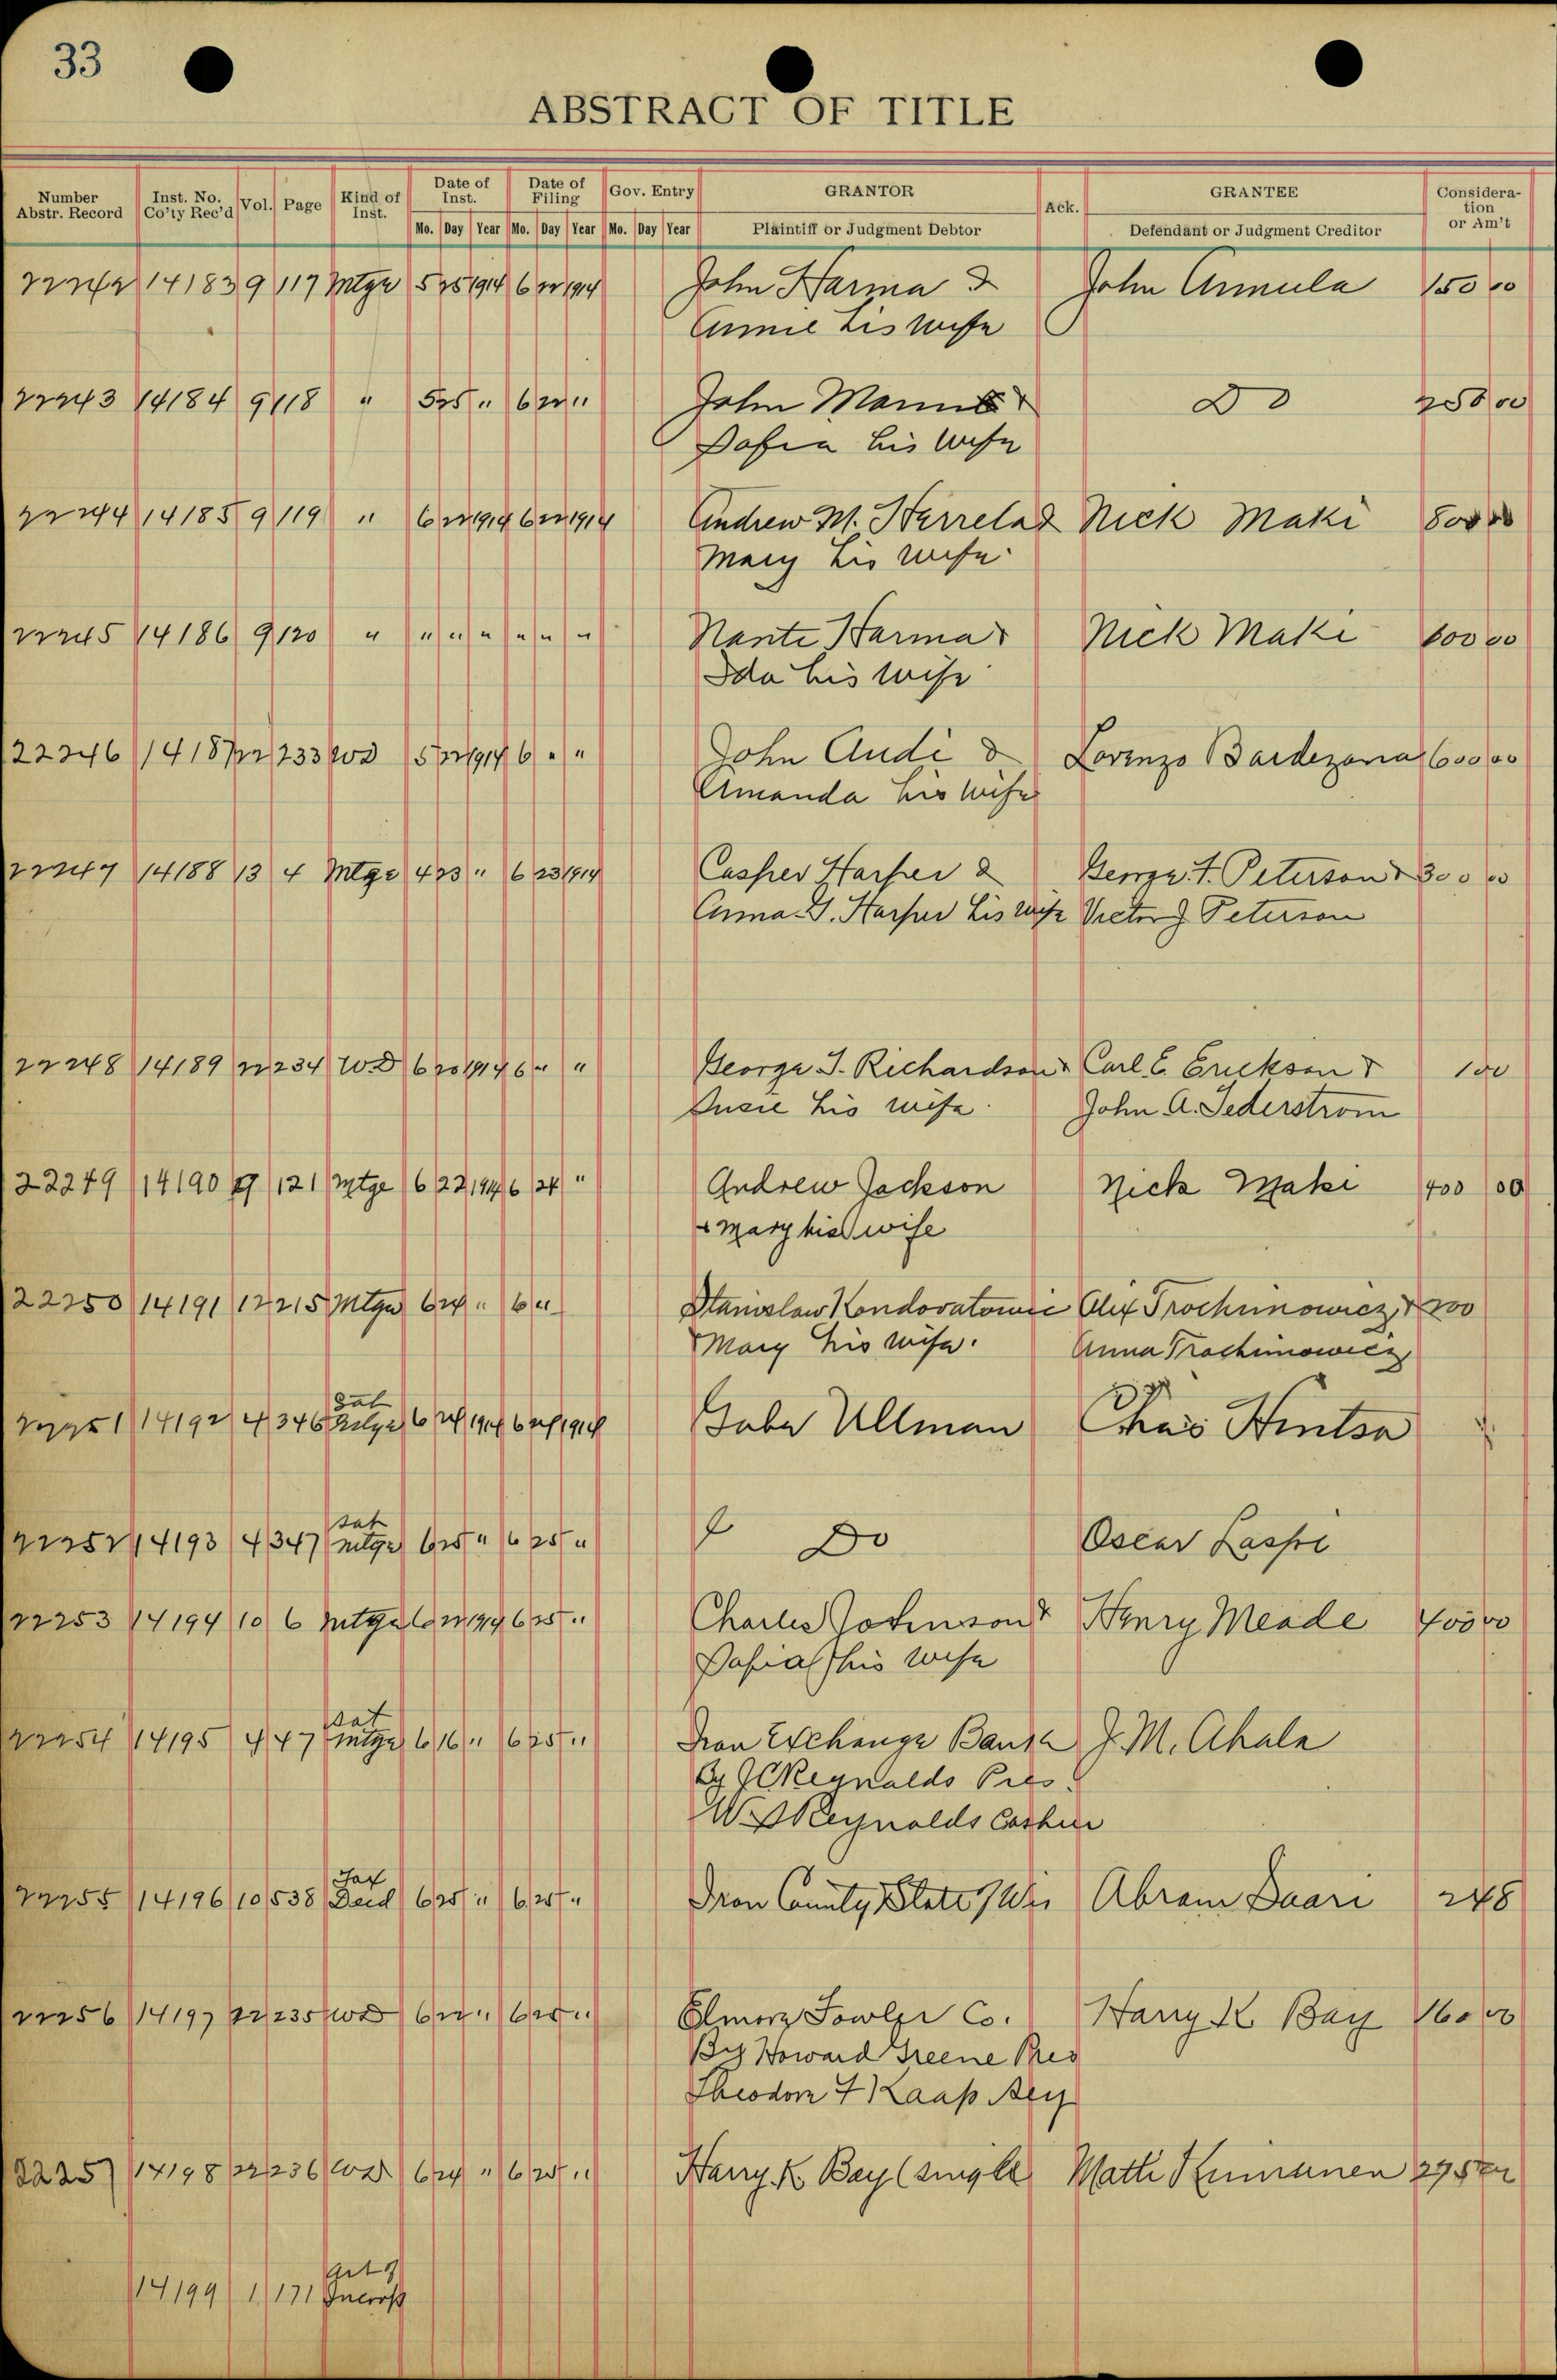 33
ABSTRACT OF TITLE
Number Abstr. Record Inst. No. Co'ty Rec'd Vol. Page Kind of Inst. Date of Inst. Date of Filing Gov. Entry GRANTOR Ack. GRANTEE Consideration or Am't
Mo. Day Year Mo. Day Year Mo. Day Year Plaintiff or Judgment Debtor Defendant or Judgment Creditor
22242 14183 9 117 Mtge 5 25 1914 6 22 1914 John Harma & John Annula 150 00
Annie his wife
22243 14184 9 118 " 5 25 " 6 22 " John & Do 250 00
Sofia his wife
22244 14185 9 119 " 6 22 1914 6 22 1914 Andrew M. Harrela & Nick Maki 800 00
Mary his wife
22245 14186 9 120 " " " " " " " Nante Harma & Nick Maki 600 00
Ida his wife
22246 14187 22 233 WD 5 22 1914 6 " " John Audi & Lorenzo Bardezona 600 00
Amanda his wife
22247 14188 13 4 Mtge 4 23 " 6 23 1914 Casper Harper & George F. Peterson & 300 00
Anna G. Harper his wife Victor J Peterson
22248 14189 22 234 W.D 6 20 1914 6 " " George J. Richardson & Carl E. Erickson & 100
Susie his wife. John A. Sederstrom
22249 14190 9 121 Mtge 6 22 1914 6 24 " Andrew Jackson Nick Maki 400 00
& Mary his wife
22250 14191 12 215 Mtge 6 24 " 6 " Stanislaw Alex Trochimowicz & 200
Mary his wife. Anna Trochimowicz
Sat
22251 14192 4 346 Mtge 6 24 1914 6 24 1914 Gabe Ullman Chas Hintsa
Sat
22252 14193 4 347 mtge 6 25 " 6 25 " Do Oscar Laspi
22253 14194 10 6 Mtge 6 22 1914 6 25 " Charles Johnson & Henry Meade 400 00
his wife
Sat
22254 14195 4 47 mtge 6 16 " 6 25 " Iron Exchange Bank J. M. Ahala
By Reynolds Pres.
W S Reynolds Cashier
Tax
22255 14196 10 538 Deed 6 25 " 6 25 " Iron County, State of Wis Abram Saari 248
22256 14197 22 235 WD 6 22 " 6 25 " Elmore Fowler Co. Harry K Bay 160 00
By Howard Greene Pres
Theodore F Kaap Secy
22257 14198 22 236 WD 6 24 " 6 25 " Harry K. Bay (single Matti
14199 1 171